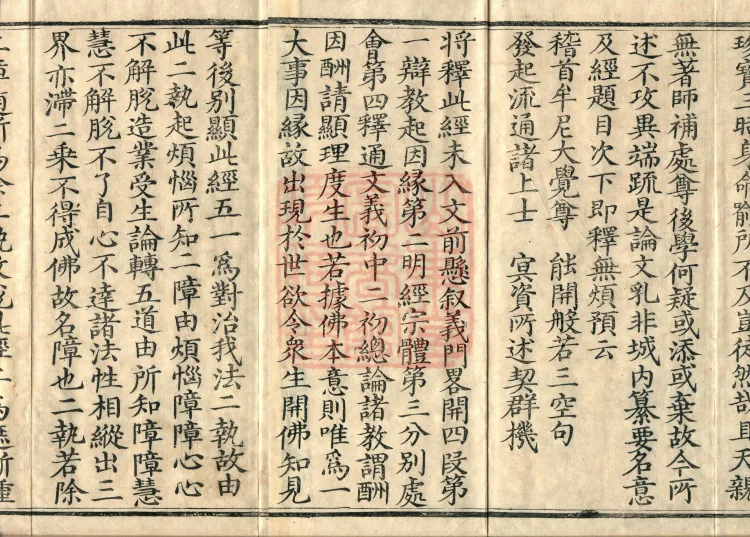 珍寶二時身命喻所不及豈徒然哉且天親
無著師補處尊後學何疑或添或棄故今所
述不攻異端䟽是論文乳非城内纂要名意
及經題目次下即釋無煩預云
稽首牟尼大覺尊　能開般若三空句
發起流通諸上士　冥資所述契群機
將釋此經未入文前懸叙義門畧開四段第
一辯教起因縁第二明經宗體第三分別處
會第四釋通文義初中二初總論諸教謂酬
因酬請顯理度生也若據佛本意則唯爲一
大事因縁故出現於世欲令衆生開佛知見
等後別顯此經五一爲對治我法二執故由
此二執起煩惱所知二障由煩惱障障心心
不解脫造業受生論轉五道由所知障障慧
慧不解脫不了自心不達諸法性相縱出三
界亦滯二乘不得成佛故名障也二執若除